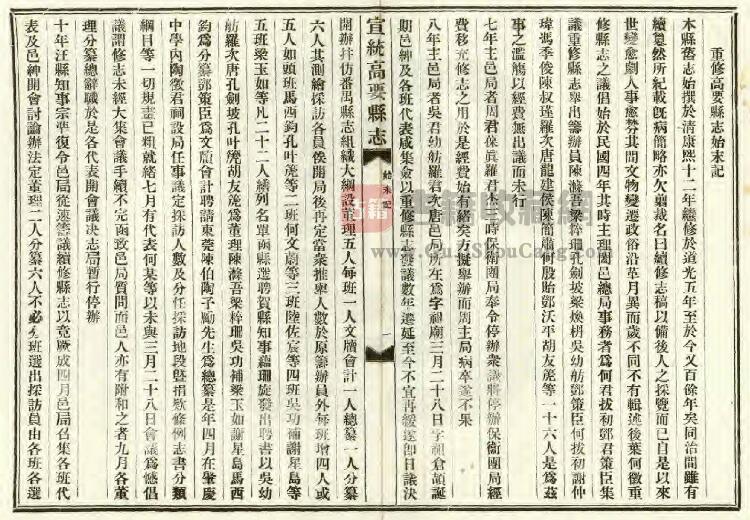 重修高要縣志始末記
本縣舊志始撰於清康熙十二年繼修於道光五年至於今又百餘年矣同治間雖有
續㦤然所紀載旣病簡略亦欠翦裁名曰續修志稿以備後人之採覽而已自是以來
世變愈劇人事愈繁其間文物變遷政俗沿革月異而歲不同不有輯述後葉何徵重
修縣志之議倡始於民國四年其時主理闔邑總局事務者爲何君拔初鄧君策臣集
議重修縣志舉出籌辦員陳滌吾梁梓珊孔劍坡梁煥栟吳幼舫鄧策臣何拔初謝仲
瑋馮季俊陳叔瑾羅次唐龍建侯陳簡廬何殷貽鄧沃平胡友箎等一十六人是爲茲
事之濫觴以經費無出議而未行
七年主邑局者周君保眞羅君杰三時保衛團局奉令停辦衆議將停辦保衛團局經
費移充修志之用於是經費始有緒矣方擬舉辦而周主局病卒遂不果
八年主邑局者吳君幼舫羅君次唐邑局所在爲字祖廟三月二十八日字祖倉頡誕
期邑紳及各班代表咸集僉以重修縣志發議數年遷延至今不宜再緩遂卽日議決
宣統高要縣志
始末記
一
開辦並仿番禺縣志組織大綱設董理五人每班一人文牘會計一人總纂一人分纂
六人其測繪採訪各員俟開局後再定當衆推舉人數於原籌辦員外每班增四人或
五人如頭班馬西鈞孔叶箎等二班何文蔚等三班陸佐宸等四班吳功補謝星島等
五班梁玉如等凡二十二人繕列名單函縣選聘賀縣知事蘊珊旋發出聘書以吳幼
舫羅次唐孔劍坡孔叶箎胡友箎爲董理陳滌吾梁梓珊吳功補梁玉如謝星島馬西
鈞爲分纂鄧策臣爲文牘會計聘請東莞陳伯陶子勵先生爲總纂是年四月在肇慶
中學內陶徵君祠設局任事議定採訪人數及分任採訪地段曁捐欵條例志書分類
綱目等一切規畫已粗就緒七月有代表何某等以未與三月二十八日會議爲憾倡
議謂修志未經大集會議手續不完函致邑局質問而邑人亦有附和之者九月各董
理分纂總辭職於是各代表開會議決志局暫行停辦
十年汪縣知事宗準復令邑局從速籌議續修縣志以竟厥成四月邑局召集各班代
表及邑紳開會討論辦法定董理二人分纂六人不必分班選出採訪員由各班各選